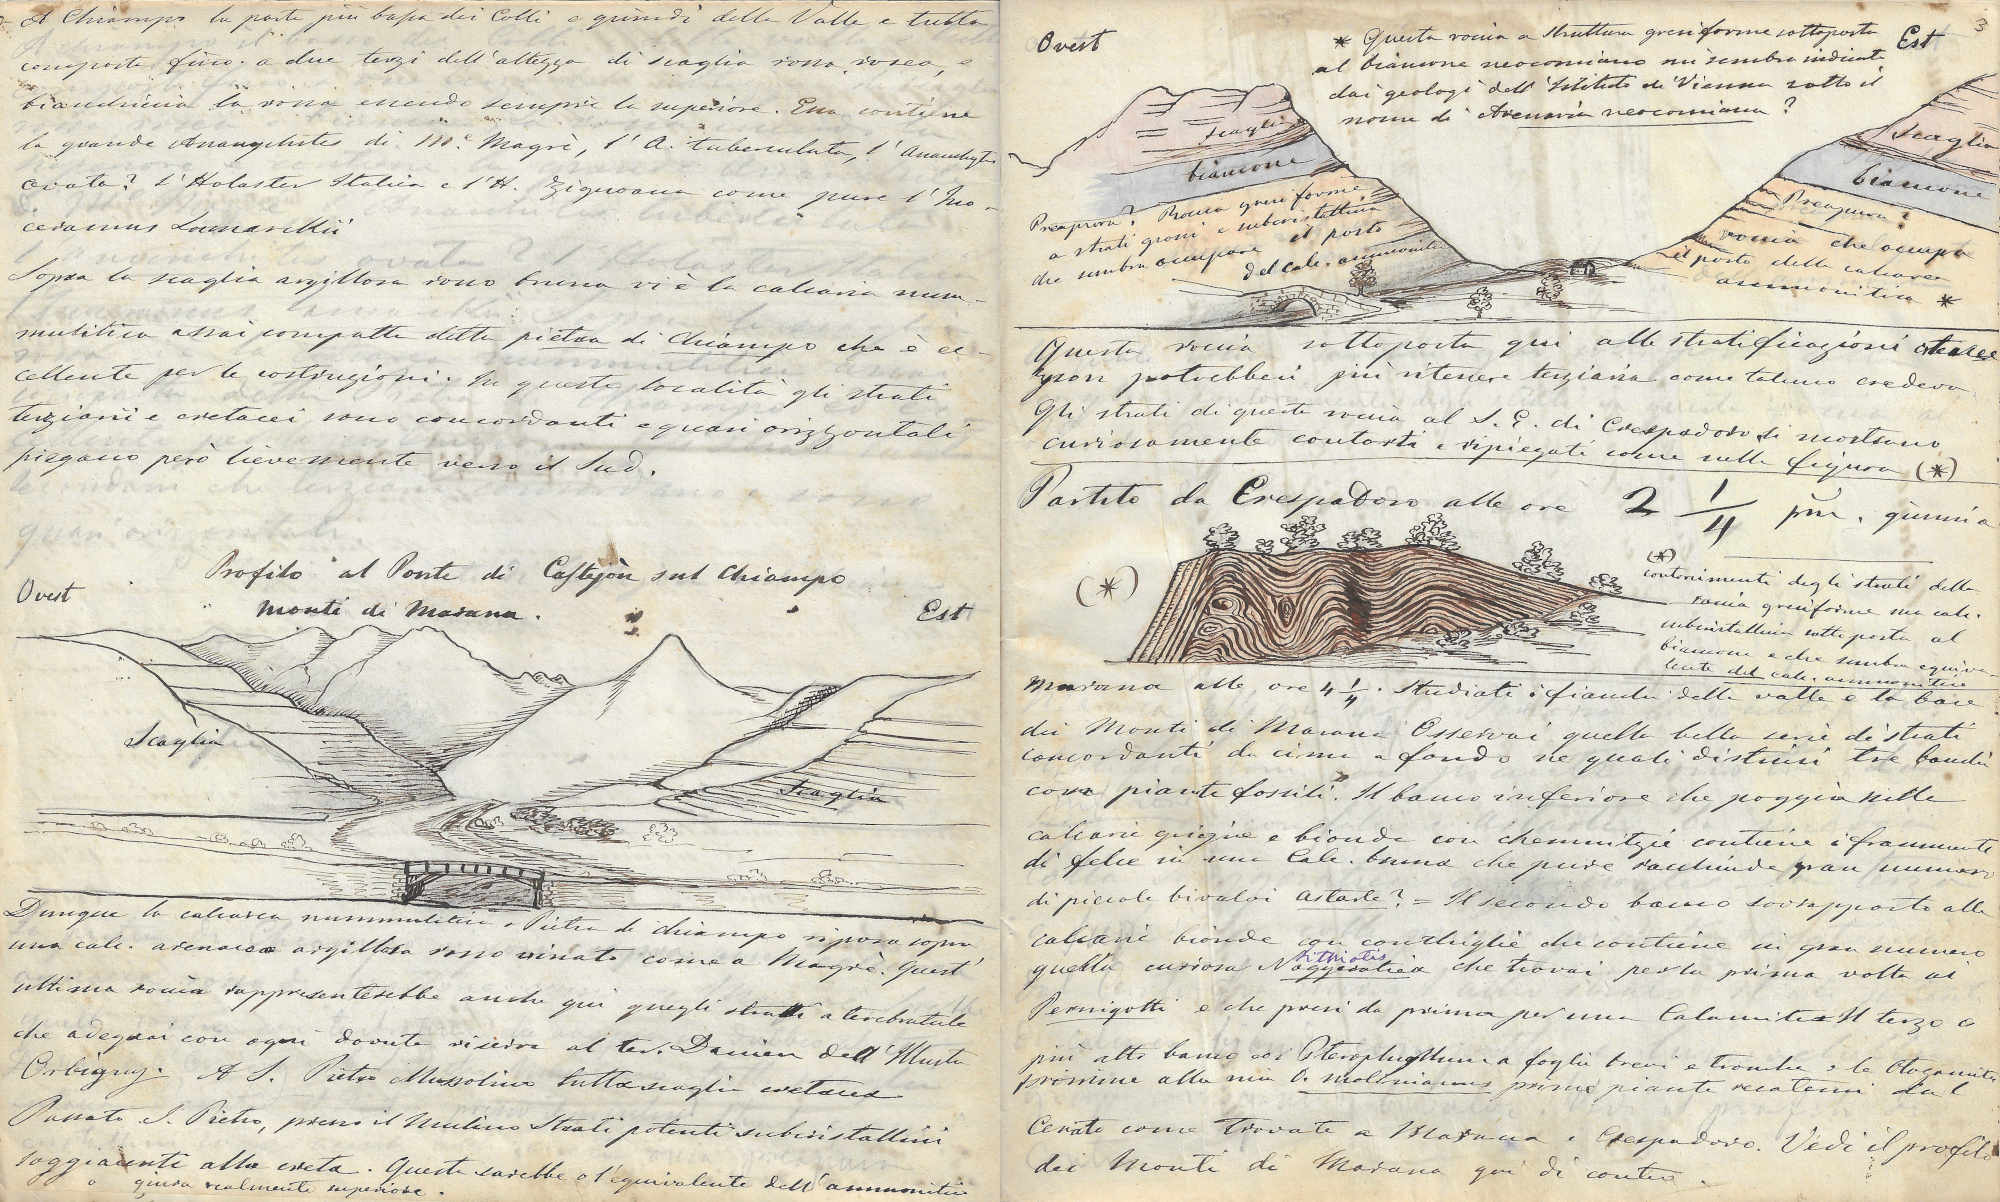 A Chiampo la parte più bassa dei Colli e quindi della Valle e tutta
composta fino a due terzi dell'altezza di scaglia rossa, rosea, e
biandiccia la rossa essendo sempre la superiore. Essa contiene
la grande Ananchites di Me. Magrè, l'A. tuberculata, l'Ananchytes
ovata? L'Holaster Italica e l'H. Zignoana come pure l'Ino-
ceramus Lamarckii
Sopra la scaglia argillosa rosso bruna vi è la calcaria num-
mulitica assai compatta detta pietra di Chiampo che è ec-
cellente per le costruzioni. In queste località gli strati
terziarii e cretacei sono concordanti e quasi orizzontali
piegano però lievemente verso il Sud.
Profilo al Ponte di Castejon sul Chiampo
Monti di Marana.
Ovest
Est
Scaglia
Scaglia
Dunque la calcarea nummulitica e Pietra di Chiampo riposa sopra
una calc. arenacea argillosa rosso vinato come a Magrè. Quest'
ultima roccia rappresenterebbe anche qui quegli strati a terebratule
che adeguai con ogni dovuta riserva al ter. Danien dell'Illustre
Orbigny. A S. Pietro Mussolino tutta scaglia cretacea
Passato S. Pietro, presso il Mulino Strati potenti subcristallini
soggiacenti alla creta. Questa sarebbe o l'equivalente dell'ammonitico
o giura realmente superiore.
3
Ovest
Est
* Questa roccia a struttura gresiforme sottoposta
al biancone neocomiano mi sembra indicata
dai geologi dell'Istituto di Vienna sotto il
nome di Arenaria neocomiana?
scaglia
biancone
Preapuora? Roccia gresiforme
a strati grossi e subcristallina
che sembra occupare il posto
del calc. ammonitico
Scaglia
biancone
Preapuora?
roccia che occupa
il posto della calcarea
ammonitica *
Questa roccia sottoposta qui alle stratificazioni cretacee
non potrebbesi più ritenere terziaria come taluno credeva
Gli strati di questa roccia al S. E. di Crespadoro si mostrano
curiosamente contorti e ripiegati come nella figura (*)
Partito da Crespadoro alle ore 2 1/4 pm. giunsi a
(*)
(*)
contorcimenti degli strati della
roccia gresiforme ma calc.
subcristallina sottoposta al
biancone e che sembra equiva-
lente del calc. ammonitico
Marana alle ore 4 1/4. Studiati i fianchi della valle e la base
dei Monti di Marana Osservai quella bella serie di strati
concordanti da cima a fondo ne quali distinsi tre banchi
con piante fossili. Il banco inferiore che poggia sulle
calcarie grigie e bionde con chemnitzie contiene i frammenti
di felce in una Calc. bruna che pure racchiude gran numero
di piccole bivalvi Astarte? = Il secondo banco sovrapposto alle
calcarie bionde con conchiglie che contiene in gran numero
Lithiotis
quella curiosa Noggerathia che trovai per la prima volta ai
Pernigotti e che presi da prima per una Calamites. Il terzo e
più alto banco coi Pterophyllum a foglie brevi e tronche e le Otozamites
prossime alla mia O. molinianus prime piante recatemi dal
Cerato come trovate a Marana e Crespadoro. Vedi il profilo
dei Monti di Marana qui di contro.